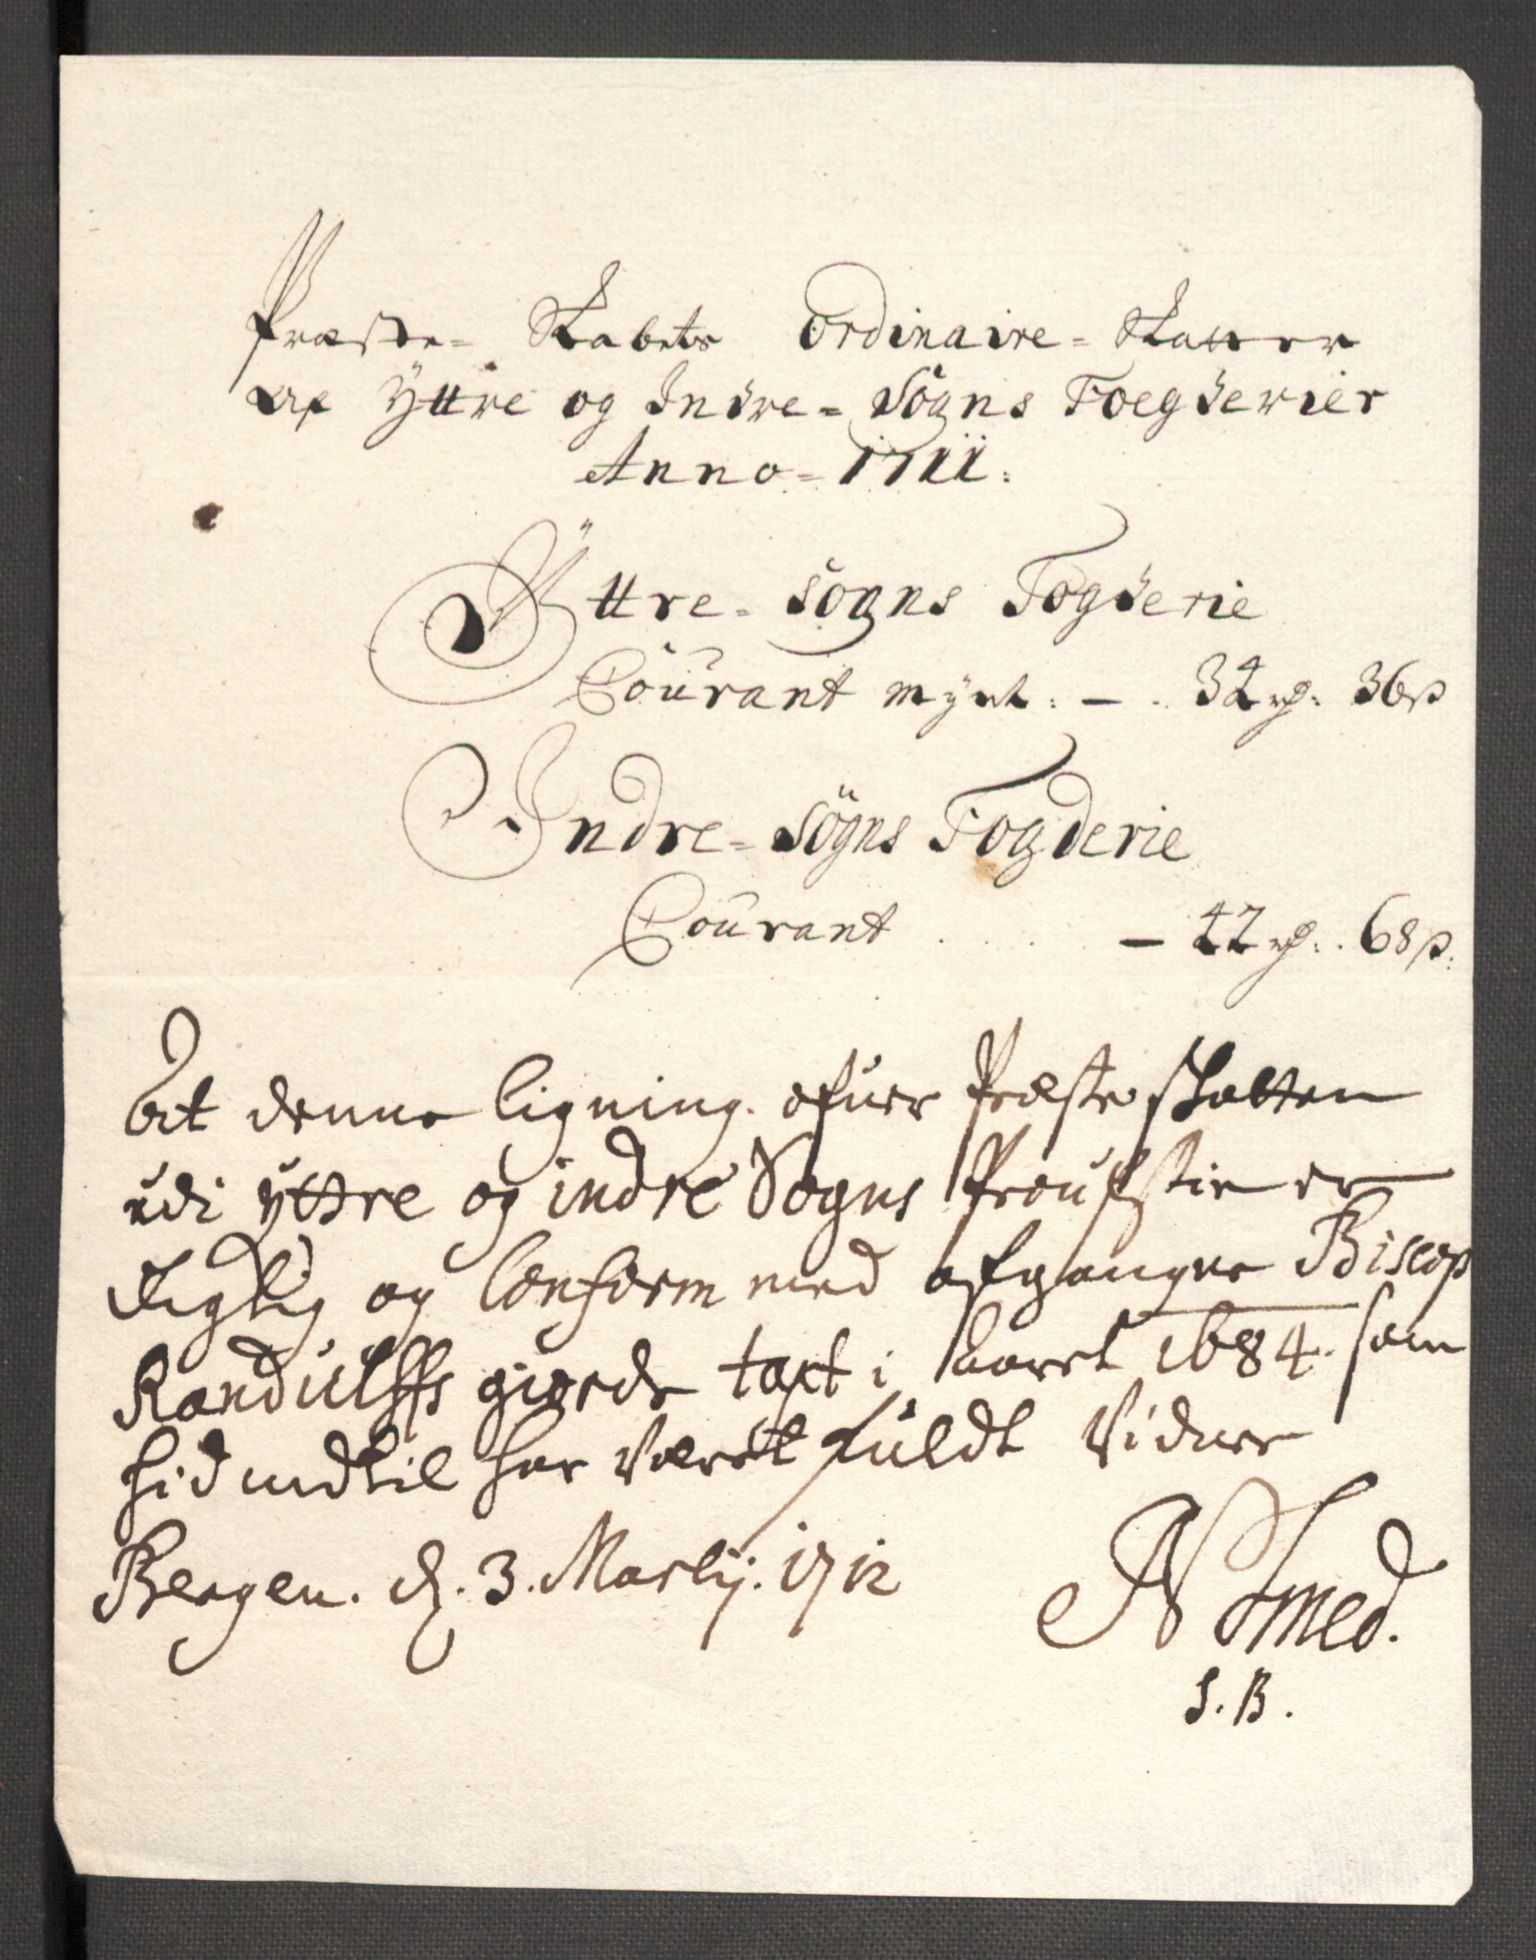 Præste- Skabets Ordinaire- Skatter
Af Ÿttre og Indre- Sogns Foegderier
Anno- 1711:
Ÿttre- Sogns Fogderie
Courant mÿnt: — . 34 rd: 36 ß
Indre- Sögns Fogderie
Courant . . . . — 42 rd: . 68 ß:
At denne ligning ofuer Præste skatten
udi ÿttre og indre Sogns Proustier er
rigtig og Conform med afgangne Biscop
Randulffs giorde taxt i aaret 1684. som
hid indtil har været fuldt Vidner
Bergen. d. 3. Martij. 1712
N Smed.
S. B.